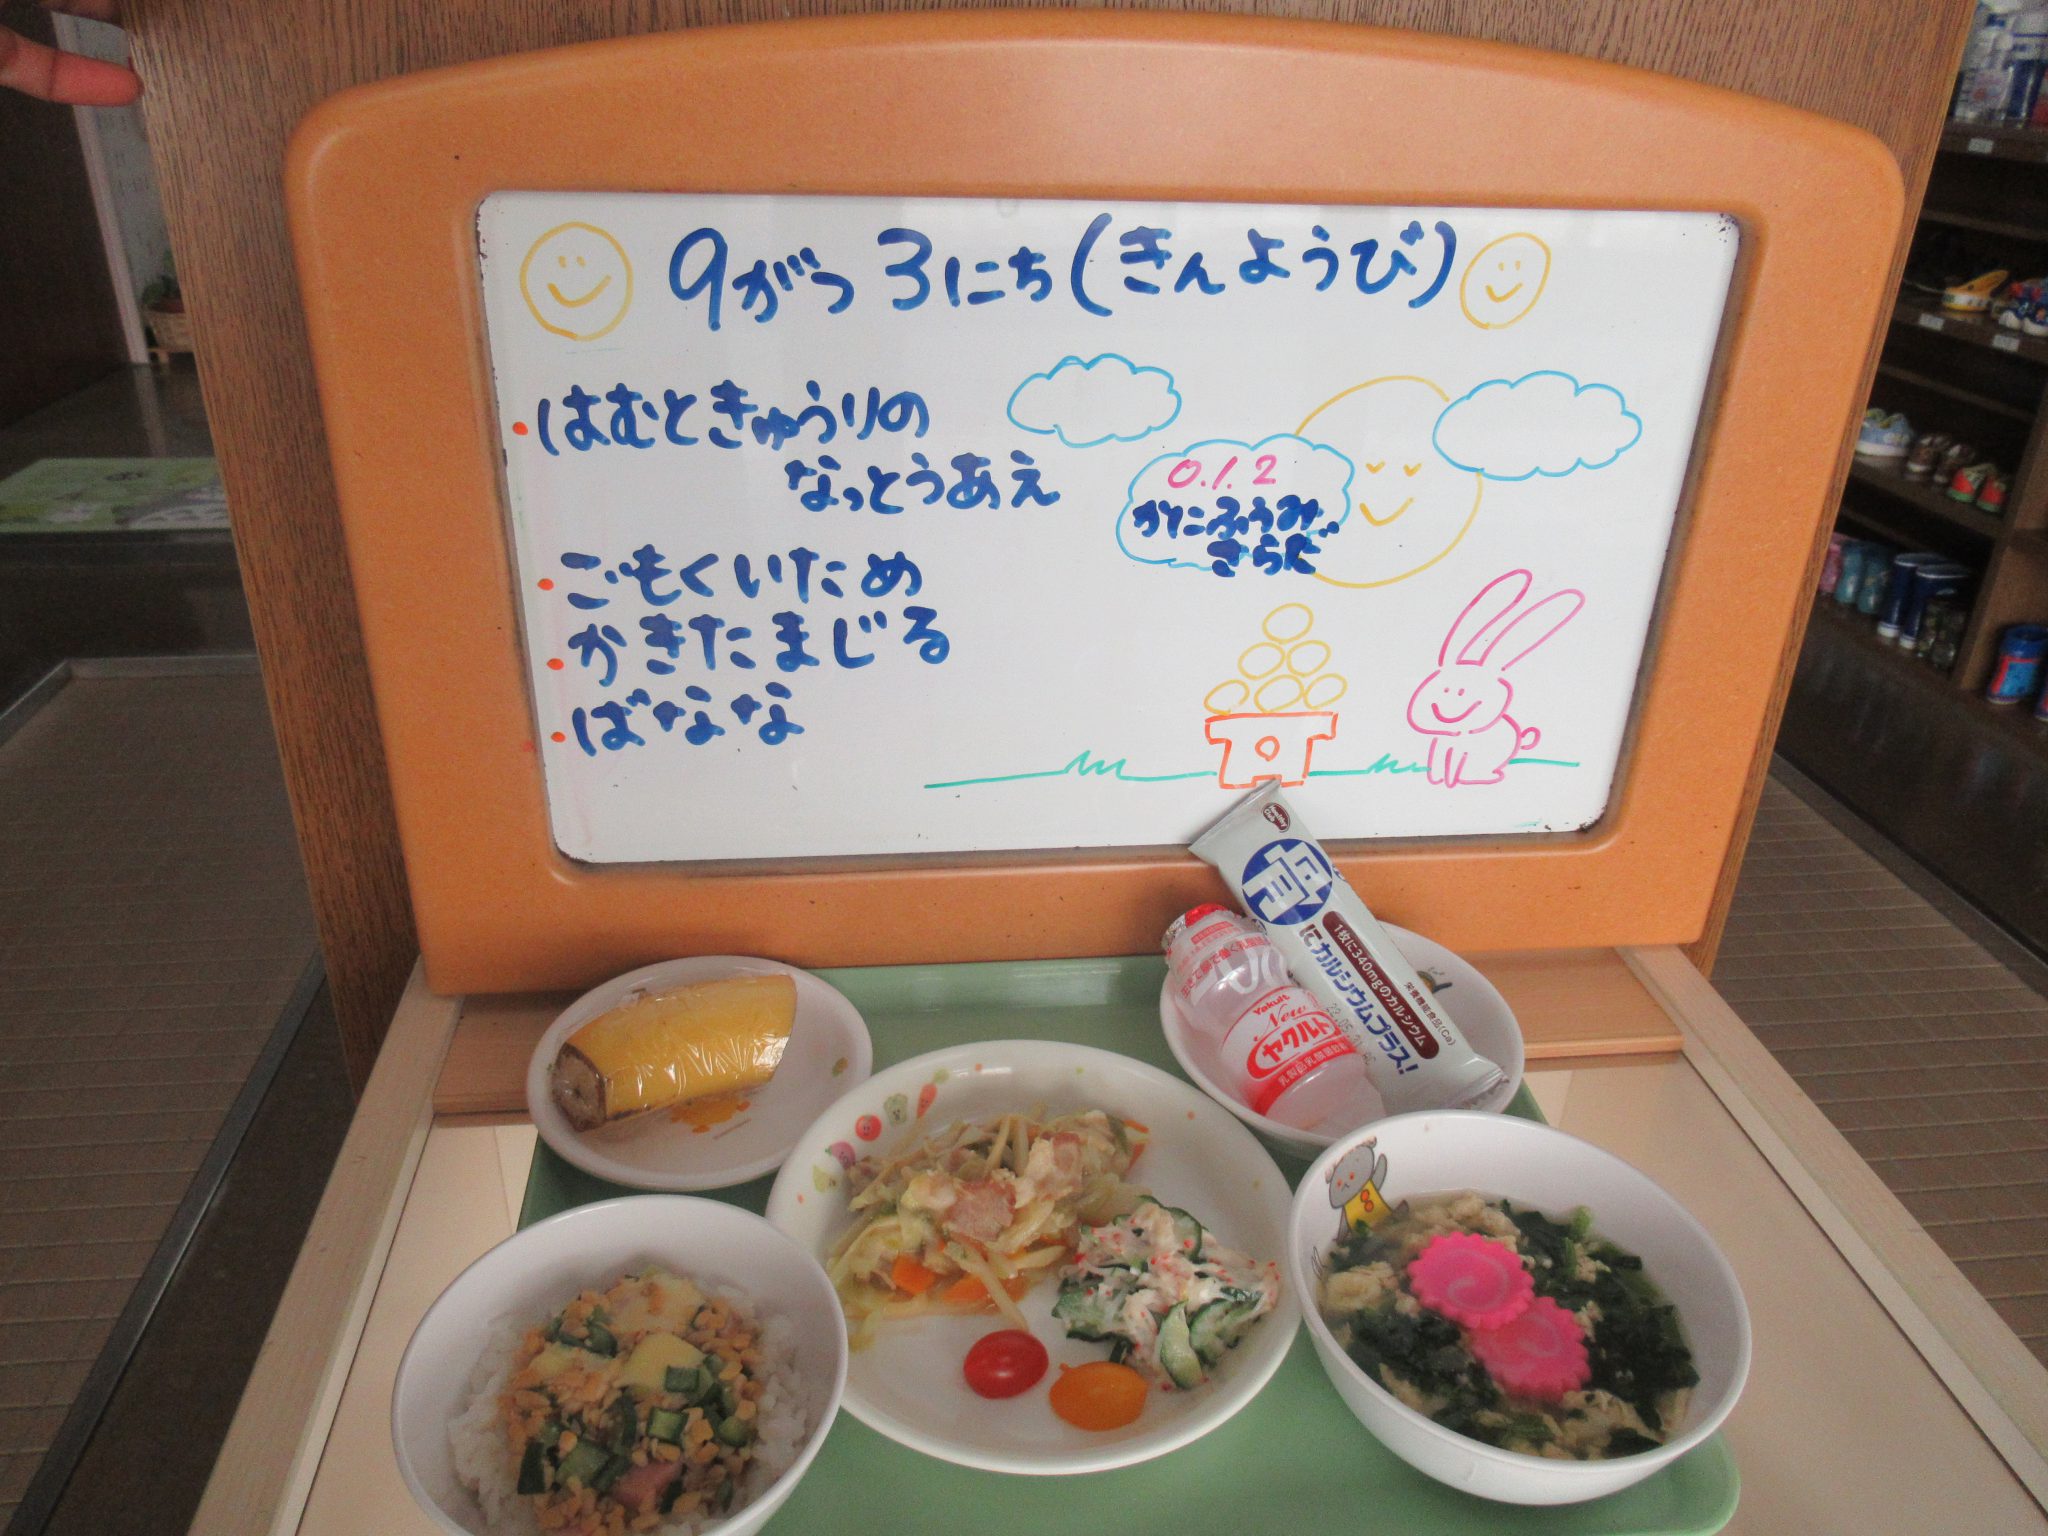 9がつ 3にち(きんようび)
・はむときゅうりの
なっとうあえ
・ごもくいため
・かきたまじる
・ばなな
0.1.2
かにふうみ
さらだ
骨
にカルシウムプラス!
1枚に340mgのカルシウム
栄養機能食品(Ca)
Yakult
New
ヤクルト